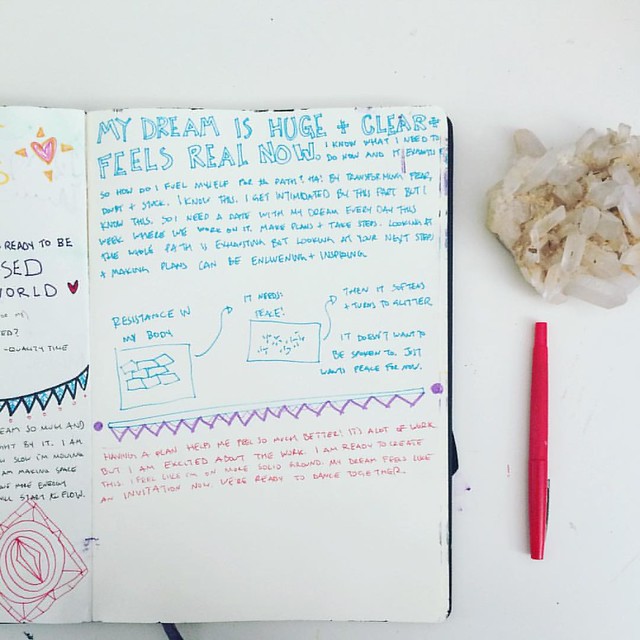 S READY TO BE
SED
WORLD
-QUALITY TIME
EAM SO MUCH AND
BY IT. I AM
SLOW I'M MOVING
AM MAKING SPACE
MORE ENERGY
START TO FLOW.
MY DREAM IS HUGE + CLEAR +
FEELS REAL NOW. I KNOW WHAT I NEED TO
DO NOW AND IT'S ENOUGH
SO HOW DO I FUEL MYSELF FOR THE PATH? HAS BY TRANSFORMING FEAR,
DOUBT + STUCK. I KNOW THIS. I GET INTIMIDATED BY THIS PART BUT I
KNOW THIS. SO I NEED A DATE WITH MY DREAM EVERY DAY THIS
WEEK WHERE WE WORK ON IT. MAKE PLANS + TAKE STEPS. LOOKING AT
THE WHOLE PATH IS EXHAUSTING BUT LOOKING AT YOUR NEXT STEPS
+ MAKING PLANS CAN BE ENLIVENING + INSPIRING.
RESISTANCE IN
MY BODY
IT NEEDS:
PEACE!
THEN IT SOFTENS
+ TURNS TO GLITTER
IT DOESN'T WANT TO
BE SPOKEN TO. JUST
WANTS PEACE FOR NOW.
HAVING A PLAN HELPS ME FEEL SO MUCH BETTER! IT'S A LOT OF WORK
BUT I AM EXCITED ABOUT THE WORK. I AM READY TO CREATE
THIS. I FEEL LIKE I'M ON MORE SOLID GROUND. MY DREAM FEELS LIKE
AN INVITATION NOW. WE'RE READY TO DANCE TOGETHER.